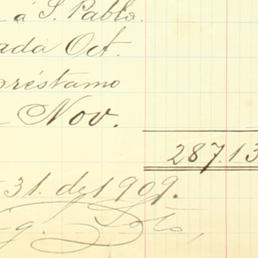 á S. Pablo.
ada Oct.
préstamo
Nov.
287.13
31. de 1909.